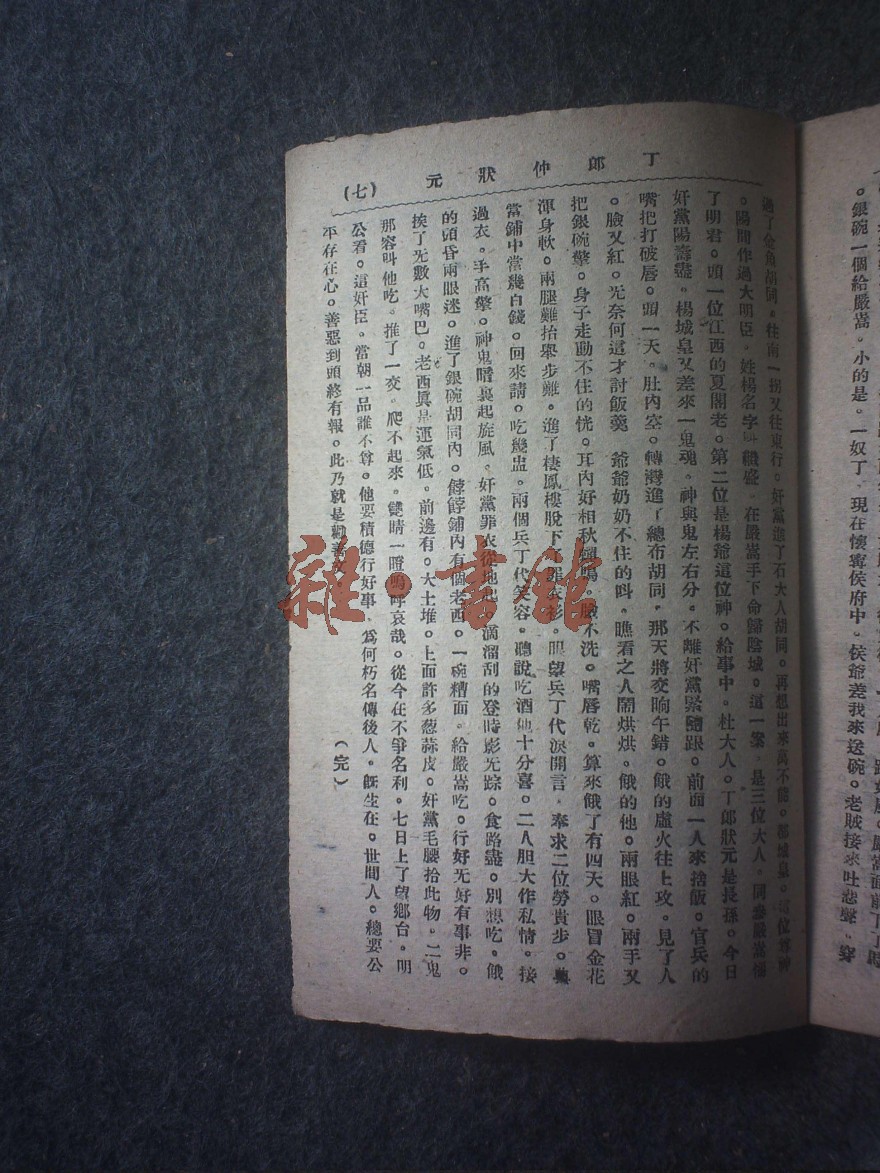 丁郎仲狀元 (七)
過了金魚胡同。往南一拐又往東行。奸黨進了石大人胡同。再想出來萬不能。都城皇。這位尊神
。陽間作過大明臣。姓楊名字 繼盛。在嚴嵩手下命歸陰城。這一案。是三位大人。同參嚴嵩
了明君。頭一位江西的夏閣老。第二位是楊爺這位神。給事中。杜大人。丁郎狀元是長孫。今日
奸黨陽壽盡。楊城皇又差來一鬼魂。神與鬼左右分。不離奸黨緊隨跟。前面一人來捨飯。官兵的
嘴把打破唇。頭一天。肚內空。轉灣進了總布胡同。那天將交晌午錯。餓的虛火往上攻。見了人
。臉又紅。无奈何這才討飯羹 爺爺奶奶不住的呌。瞧看之人鬧烘烘。餓的他。兩眼紅。兩手又
把銀碗擎。身子走動不住的恍。耳內好相秋蟬鳴。臉不洗。嘴唇乾。算來餓了有四天。眼冒金花
渾身軟。兩腿難抬舉步難。進了棲鳳樓脫下了罪衣衫。眼望兵丁代淚開言。奉求二位勞貴步。典
當鋪中當幾百錢。回來請。吃幾盅。兩個兵丁代笑容。聽說吃酒他十分喜。二人胆大作私情。接
過衣。手高擎。神鬼暗裏起旋風。奸黨罪衣從地起。滴溜刮的登時影无踪。食路盡。別想吃。餓
的頭昏兩眼迷。進了銀碗胡同內。餑餑鋪內有個老西。一碗糟面。給嚴嵩吃。行好无好有事非。
挨了无數大嘴巴。老西眞是運氣低。前邊有。大土堆。上面許多葱蒜皮。奸黨毛腰拾此物。二鬼
那容叫他吃。推了一交。爬不起來。雙睛一瞪嗚呼哀哉。從今在不爭名利。七日上了望鄉台。明
公看。這奸臣。當朝一品誰不尊。他要積德行好事。爲何朽名傳後人。旣生在。世間人。總要公
平存在心。善惡到頭終有報。此乃就是勸善文 (完)
。銀碗一個給嚴嵩。小的是。一奴丁。現在懷寗侯府中。侯爺差我來送碗。老賊接來吐悲聲。穿
雜·書館